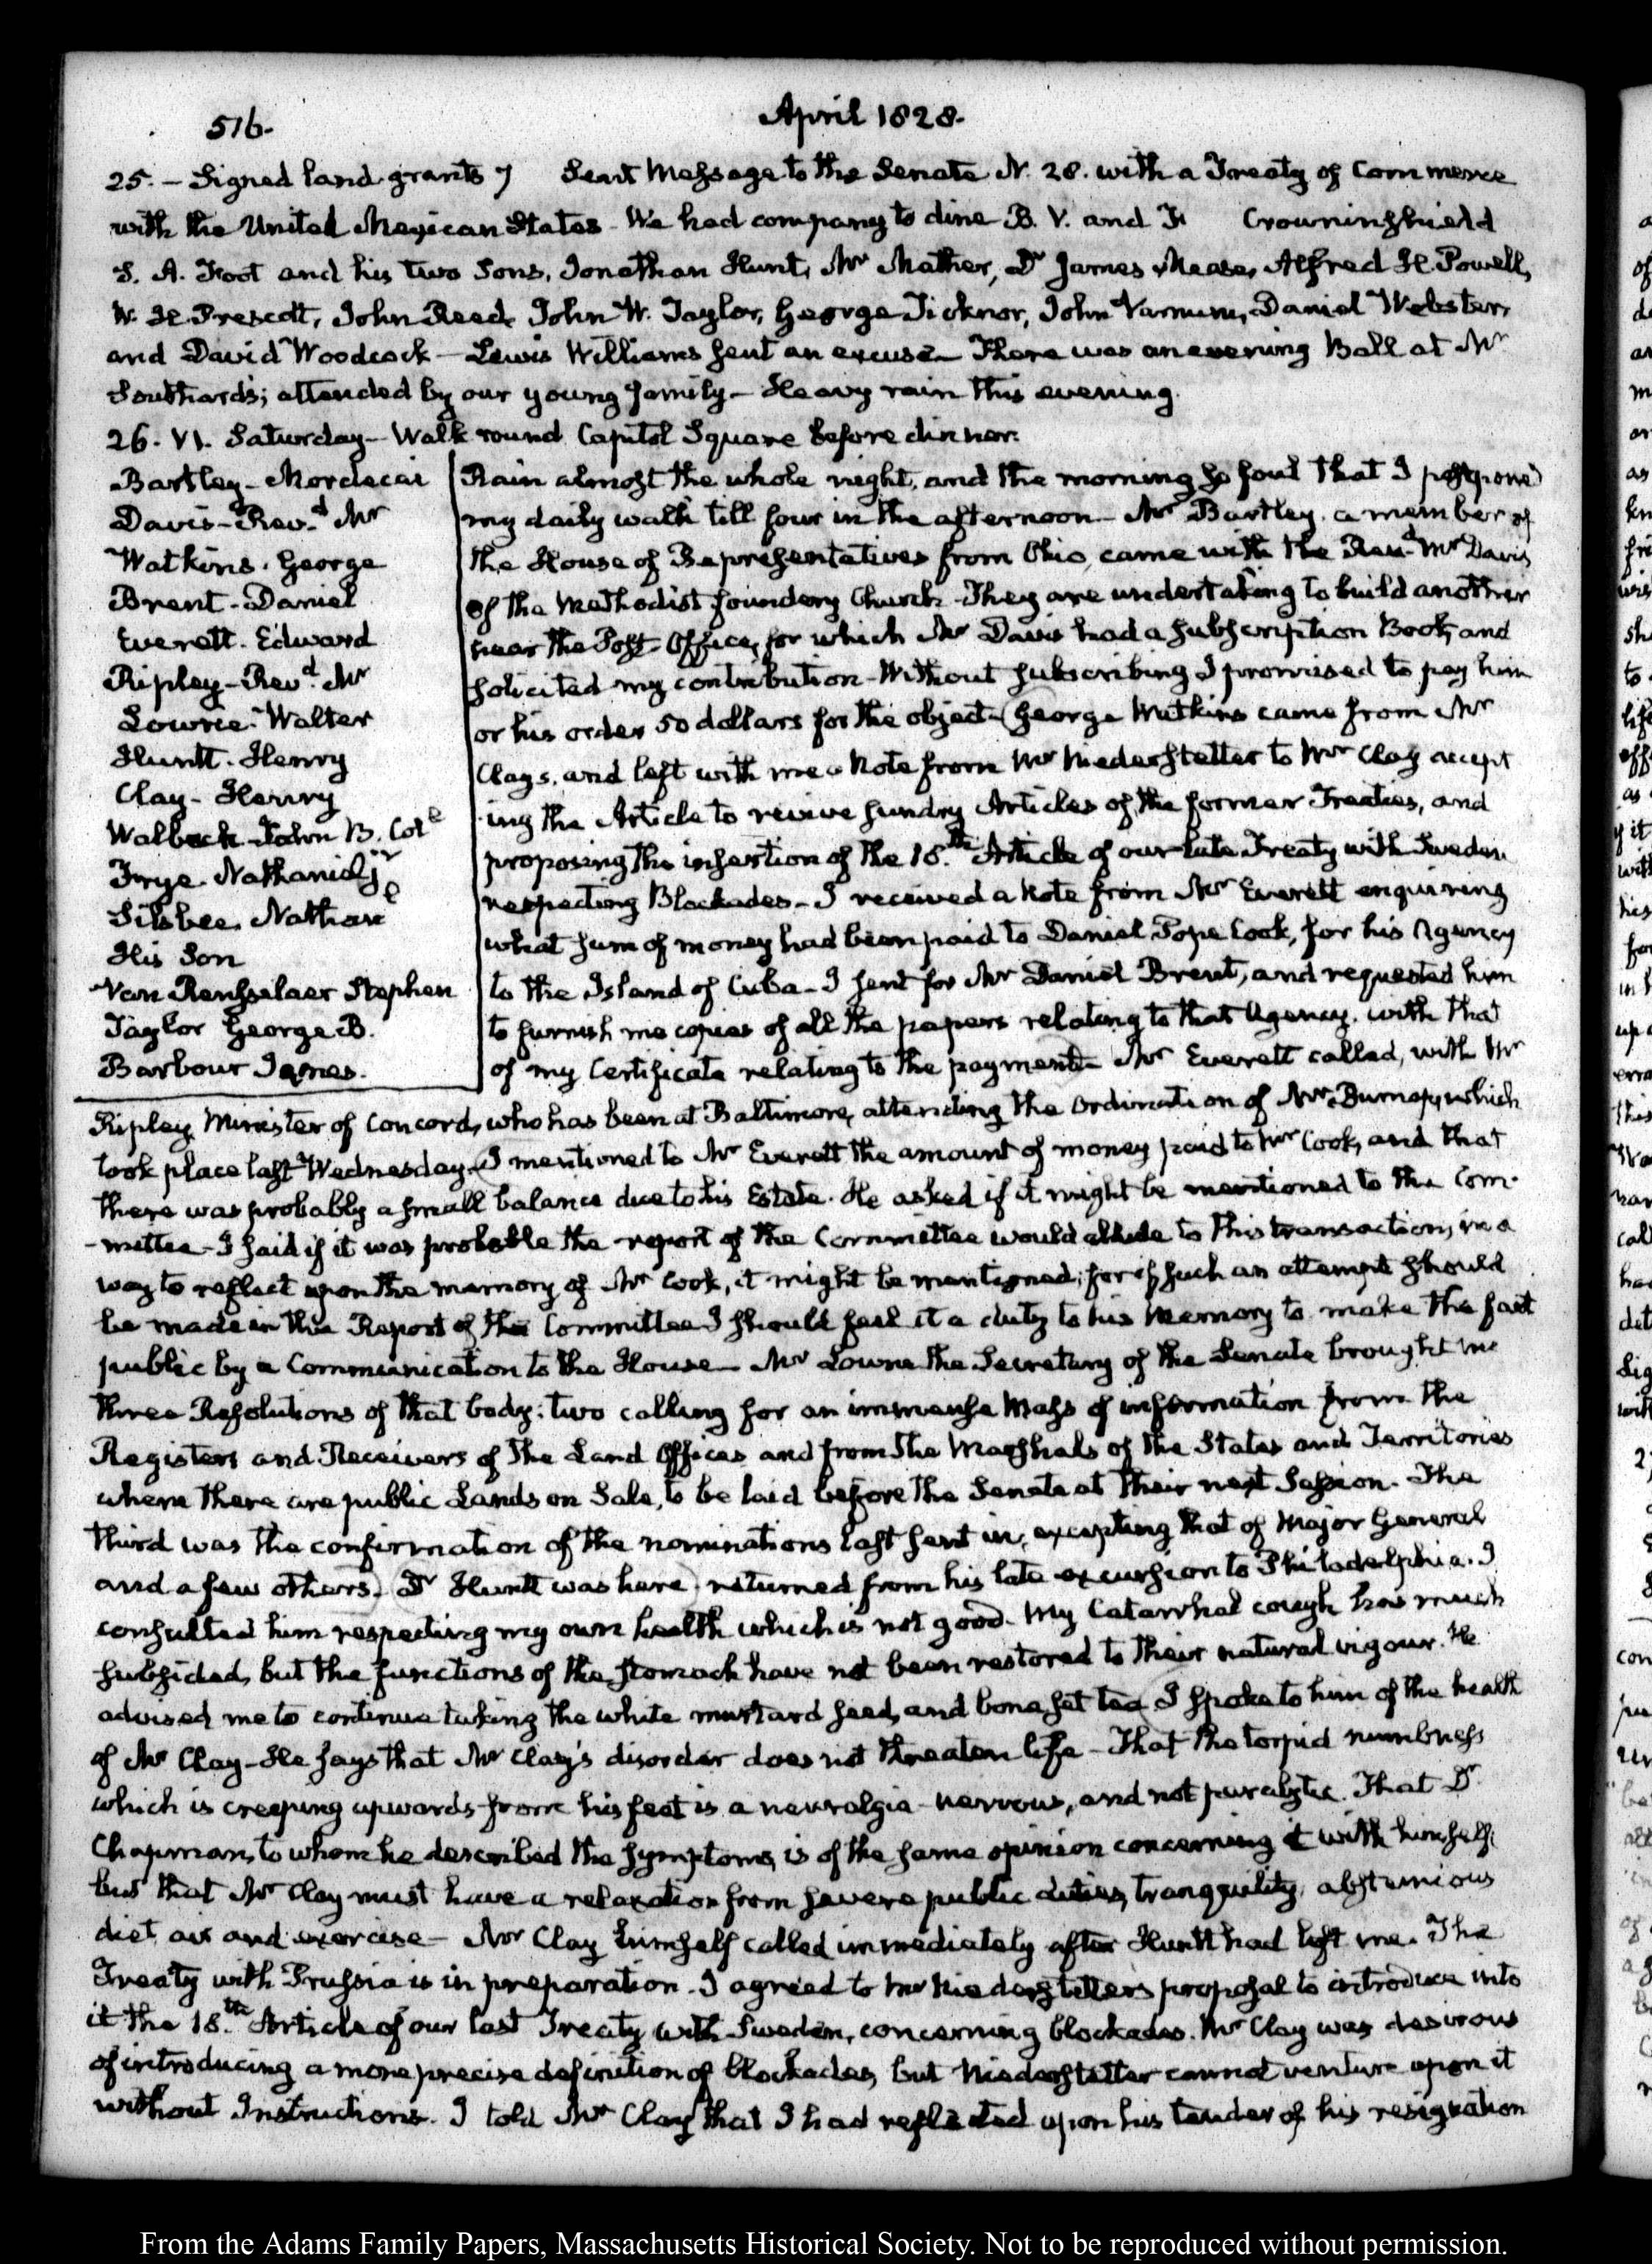 516.
April 1828.
25. – Signed land grants 7 Sent Message to the Senate N. 28. with a Treaty of Commerce
with the United Mexican States – We had company to dine B. V. and F. Crowninshield
S. A. Foot and his two Sons, Jonathan Hunt, Mr Mather, Dr James Mease, Alfred H. Powell,
W. H. Prescott, John Reed, John W. Taylor, George Ticknor, John Varnum, Daniel Webster,
and David Woodcock – Lewis Williams sent an excuse – There was an evening Ball at Mr
Southard's; attended by our young family – Heavy rain this evening.
26. VI. Saturday – Walk round Capitol Square before dinner.
Bartley – Mordecai
Davis – Revd. Mr
Watkins. George
Brent – Daniel
Everett. Edward
Ripley – Revd. Mr
Lowrie – Walter
Huntt. Henry
Clay – Henry
Walback – John B. Coll
Frye. Nathaniel jr
Silsbee. Nathanl
His Son
Van Rensselaer Stephen
Taylor George B.
Barbour James.
Rain almost the whole night, and the morning so foul that I postponed
my daily walk till four in the afternoon – Mr Bartley, a member of
the House of Representatives from Ohio, came with the Revd Mr Davis
of the Methodist foundery Church – They are undertaking to build another
near the Post-Office, for which Mr Davis had a subscription Book, and
solicited my contribution – Without subscribing I promised to pay him
or his order 50 dollars for the object – George Watkins came from Mr
Clay's, and left with me a Note from Mr Niederstetter to Mr Clay accept
ing the Article to revive sundry Articles of the former Treaties, and
proposing the insertion of the 18.th Article of our late Treaty with Sweden
respecting Blockades – I received a Note from Mr Everett enquiring
what sum of money had been paid to Daniel Pope Cook, for his Agency
to the Island of Cuba – I sent for Mr Daniel Brent, and requested him
to furnish me copies of all the papers relating to that Agency, with that
of my Certificate relating to the payment – Mr Everett called, with Mr
Ripley, Minister of Concord, who has been at Baltimore, attending the Ordination of Mr Burnap, which
took place last Wednesday – I mentioned to Mr Everett the amount of money paid to Mr Cook, and that
there was probably a small balance due to his Estate. He asked if it might be mentioned to the Com-
-mittee – I said if it was probable the report of the Committee would allude to this transaction, in a
way to reflect upon the memory of Mr Cook, it might be mentioned; for if such an attempt should
be made in the Report of the Committee I should feel it a duty to his Memory to make the fact
public by a Communication to the House – Mr Lowrie the Secretary of the Senate brought me
three Resolutions of that body; two calling for an immense Mass of information from the
Registers and Receivers of the Land Offices and from the Marshals of the States and Territories
where there are public Lands on Sale, to be laid before the Senate at their next Session. The
third was the confirmation of the nominations last sent in, excepting that of Major General
and a few others. Dr Huntt was here, returned from his late excursion to Philadelphia. I
consulted him respecting my own health which is not good. My Catarrhal cough has much
subsided, but the functions of the stomach have not been restored to their natural vigour. He
advised me to continue taking the white mustard seed, and boneset tea – I spoke to him of the health
of Mr Clay – He says that Mr Clay's disorder does not threaten life – That the torpid numbness
which is creeping upwards from his feet is a neuralgia – nervous, and not paralytic. That Dr
Chapman, to whom he described the symptoms, is of the same opinion concerning it with himself;
but that Mr Clay must have a relaxation from severe public duties, tranquility, abstemious
diet, air and exercise – Mr Clay himself called immediately after Huntt had left me. The
Treaty with Prussia is in preparation. I agreed to Mr Niederstetter's proposal to introduce into
it the 18.th Article of our last Treaty with Sweden, concerning blockades. Mr Clay was desirous
of introducing a more precise definition of blockades, but Niederstetter cannot venture upon it
without Instructions. I told Mr Clay that I had reflected upon his tender of his resignation
From the Adams Family Papers, Massachusetts Historical Society. Not to be reproduced without permission.